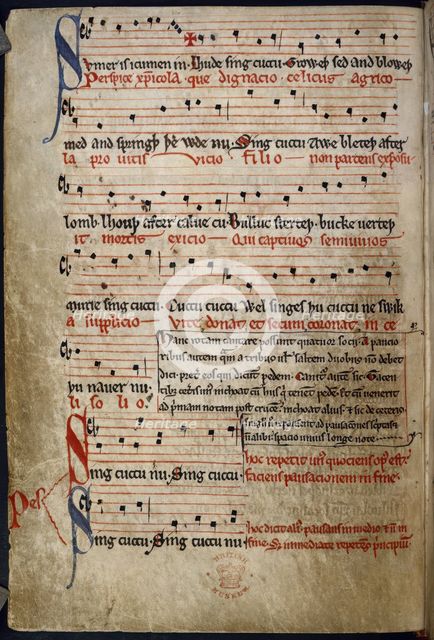 Sumer is icumen in. Lhude sing cuccu. Groweþ sed and bloweþ
Perspice xp̄icola. que dignacio. celicus agrico
med and springþ þe wde nu. Sing cuccu Awe bleteþ after
la pro uitis vicio filio non parcens exposu
lomb. lhouþ after calue cu. Bulluc sterteþ. bucke uerteþ
it mortis exicio Qui captiuos semiuiuos
murie sing cuccu. Cuccu cuccu Wel singes þu cuccu ne swik
a supplicio Vite donat et secum coronat in ce
Hanc rotam cantare possunt quatuor socij. A paucio
ribus autem quam a tribus uel saltem duobus non debet
þu nauer nu.
dici preter eos qui dicunt pedem. Canitur autem sic. Tacen
li solio.
tibus ceteris unus inchoat cum hiis qui tenent pedem. et cum uenerit
ad primam notam post crucem. inchoat alius. et sic de ceteris
singuli repausent ad pausaciones scriptas
non alibi. spacio unius longe note
Pes
Sing cuccu nu. Sing cuccu.
hoc repetit unus quociens opus est.
faciens pausacionem in fine.
Sing cuccu. Sing cuccu nu
hoc dicit alius. pausans in medio. et non in
fine. Set immediate repetens principium.
BRITISH
MUSEUM
Heritage